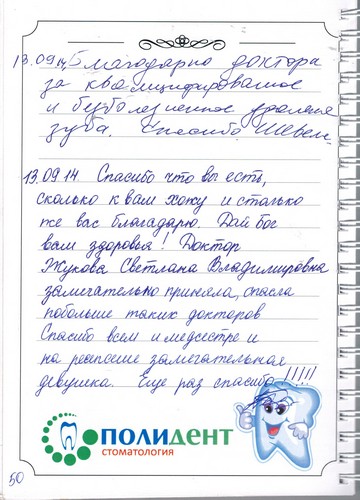 13.09.14 Благодарна доктора
за квалифицированное
и безболезненное удаление
зуба. Спасибо! Шевел-
13.09.14 Спасибо что вы есть,
сколько к вам хожу и столько
же вас благодарю. Дай бог
вам здоровья! Доктор
Жукова Светлана Владимировна
замечательно приняла, спасла
побольше таких докторов
Спасибо всем и медсестре и
на ресепшене замечательная
девушка. Еще раз спасибо!!!!!
ПОЛИДЕНТ
СТОМАТОЛОГИЯ
50